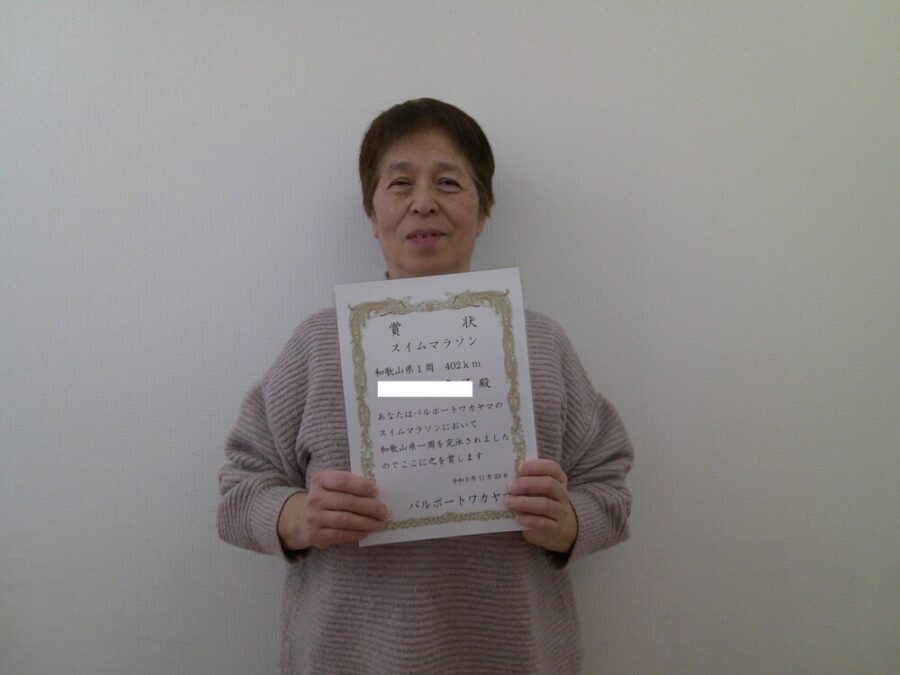 賞状
スイムマラソン
和歌山県1周 402km
殿
あなたはパルポートワカヤマの
スイムマラソンにおいて
和歌山県一周を完泳されました
のでここに之を賞します
令和5年11月23日
パルポートワカヤマ